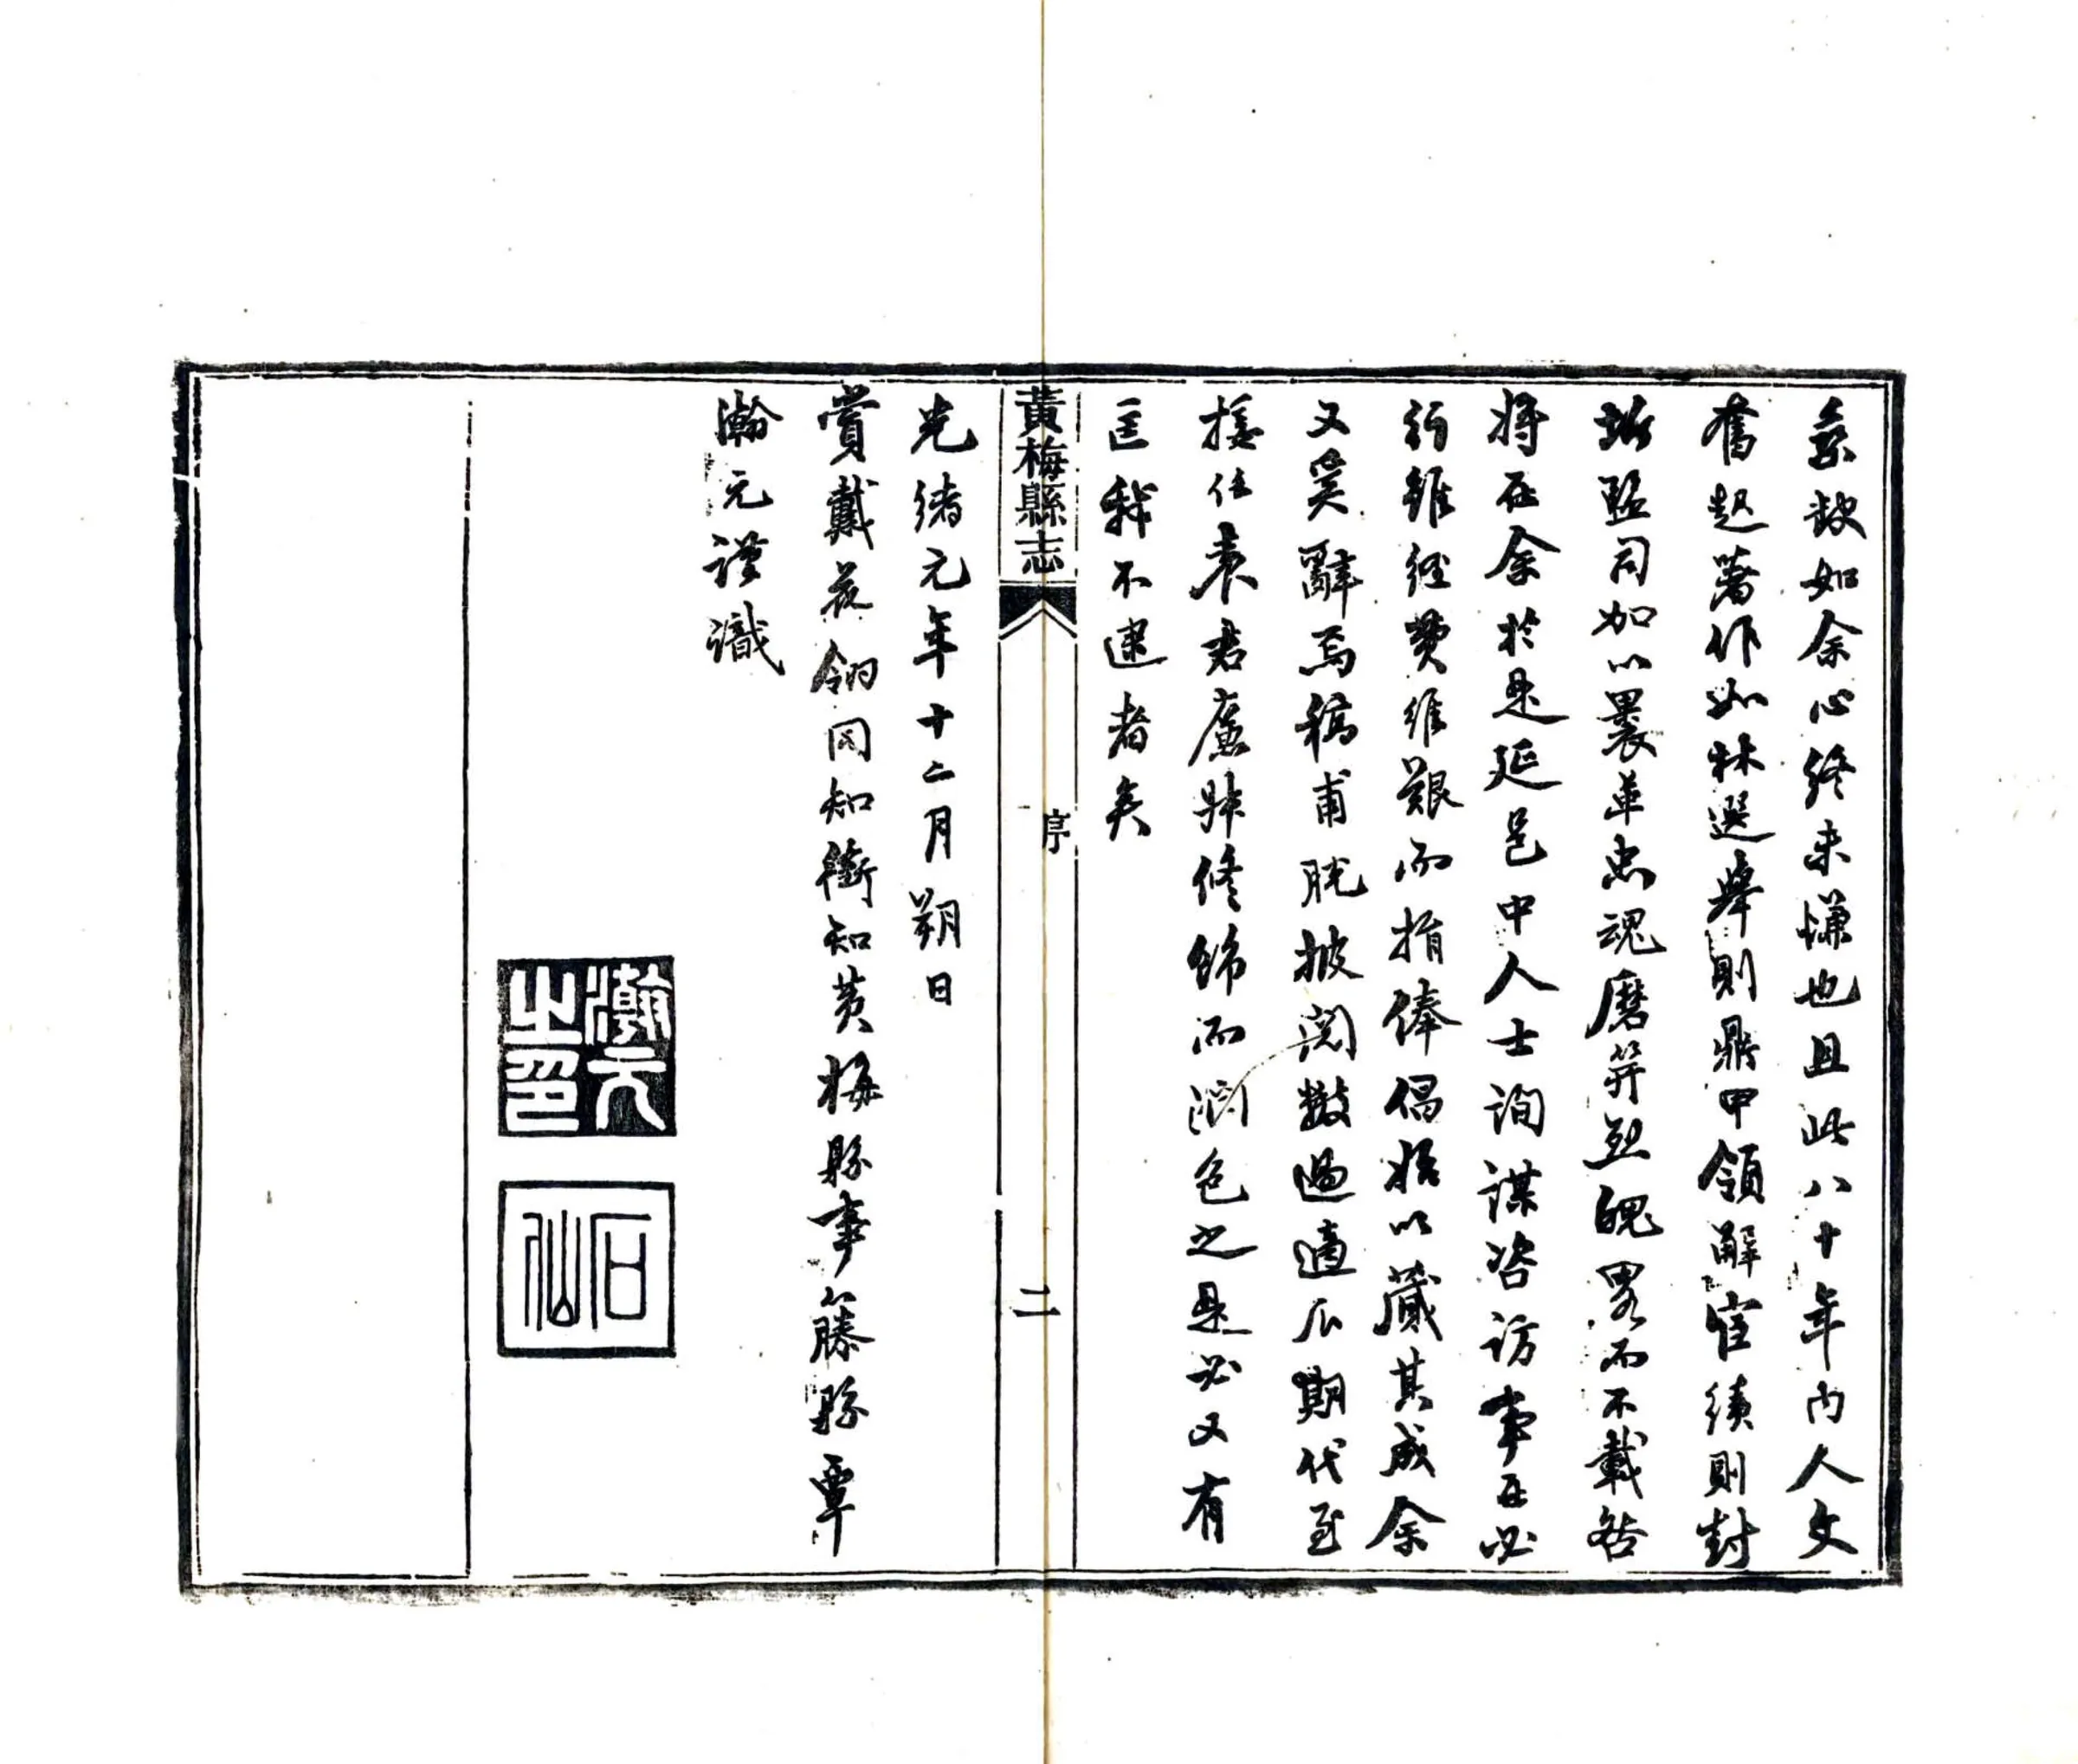 氣敖如余心終未慊也且此八十年內人文
奮起著作如林選舉則鼎甲領解宦績則封
圻監司加以裹革忠魂磨筓烈魄畧而不載咎
將在余於是延邑中人士詢謀咨訪事在必
行雖經費維艱而捐俸倡始以蕆其成余
又奚辭焉稿甫脫披閱數過適瓜期代至
接任袁君廉叔修飾而潤色之是必又有
匡我不逮者矣
黃梅縣志
序
二
光緒元年十二月朔日
賞戴花翎同知銜知黃梅縣事籐縣覃
瀚元謹識
瀚元之印
石仙